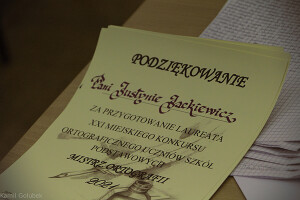 PODZIĘKOWANIE
Pani Justynie Jackiewicz
ZA PRZYGOTOWANIE LAUREATA
XXI MIEJSKIEGO KONKURSU
ORTOGRAFICZNEGO UCZNIÓW SZKÓŁ
PODSTAWOWYCH
MISTRZ ORTOGRAFII
2021